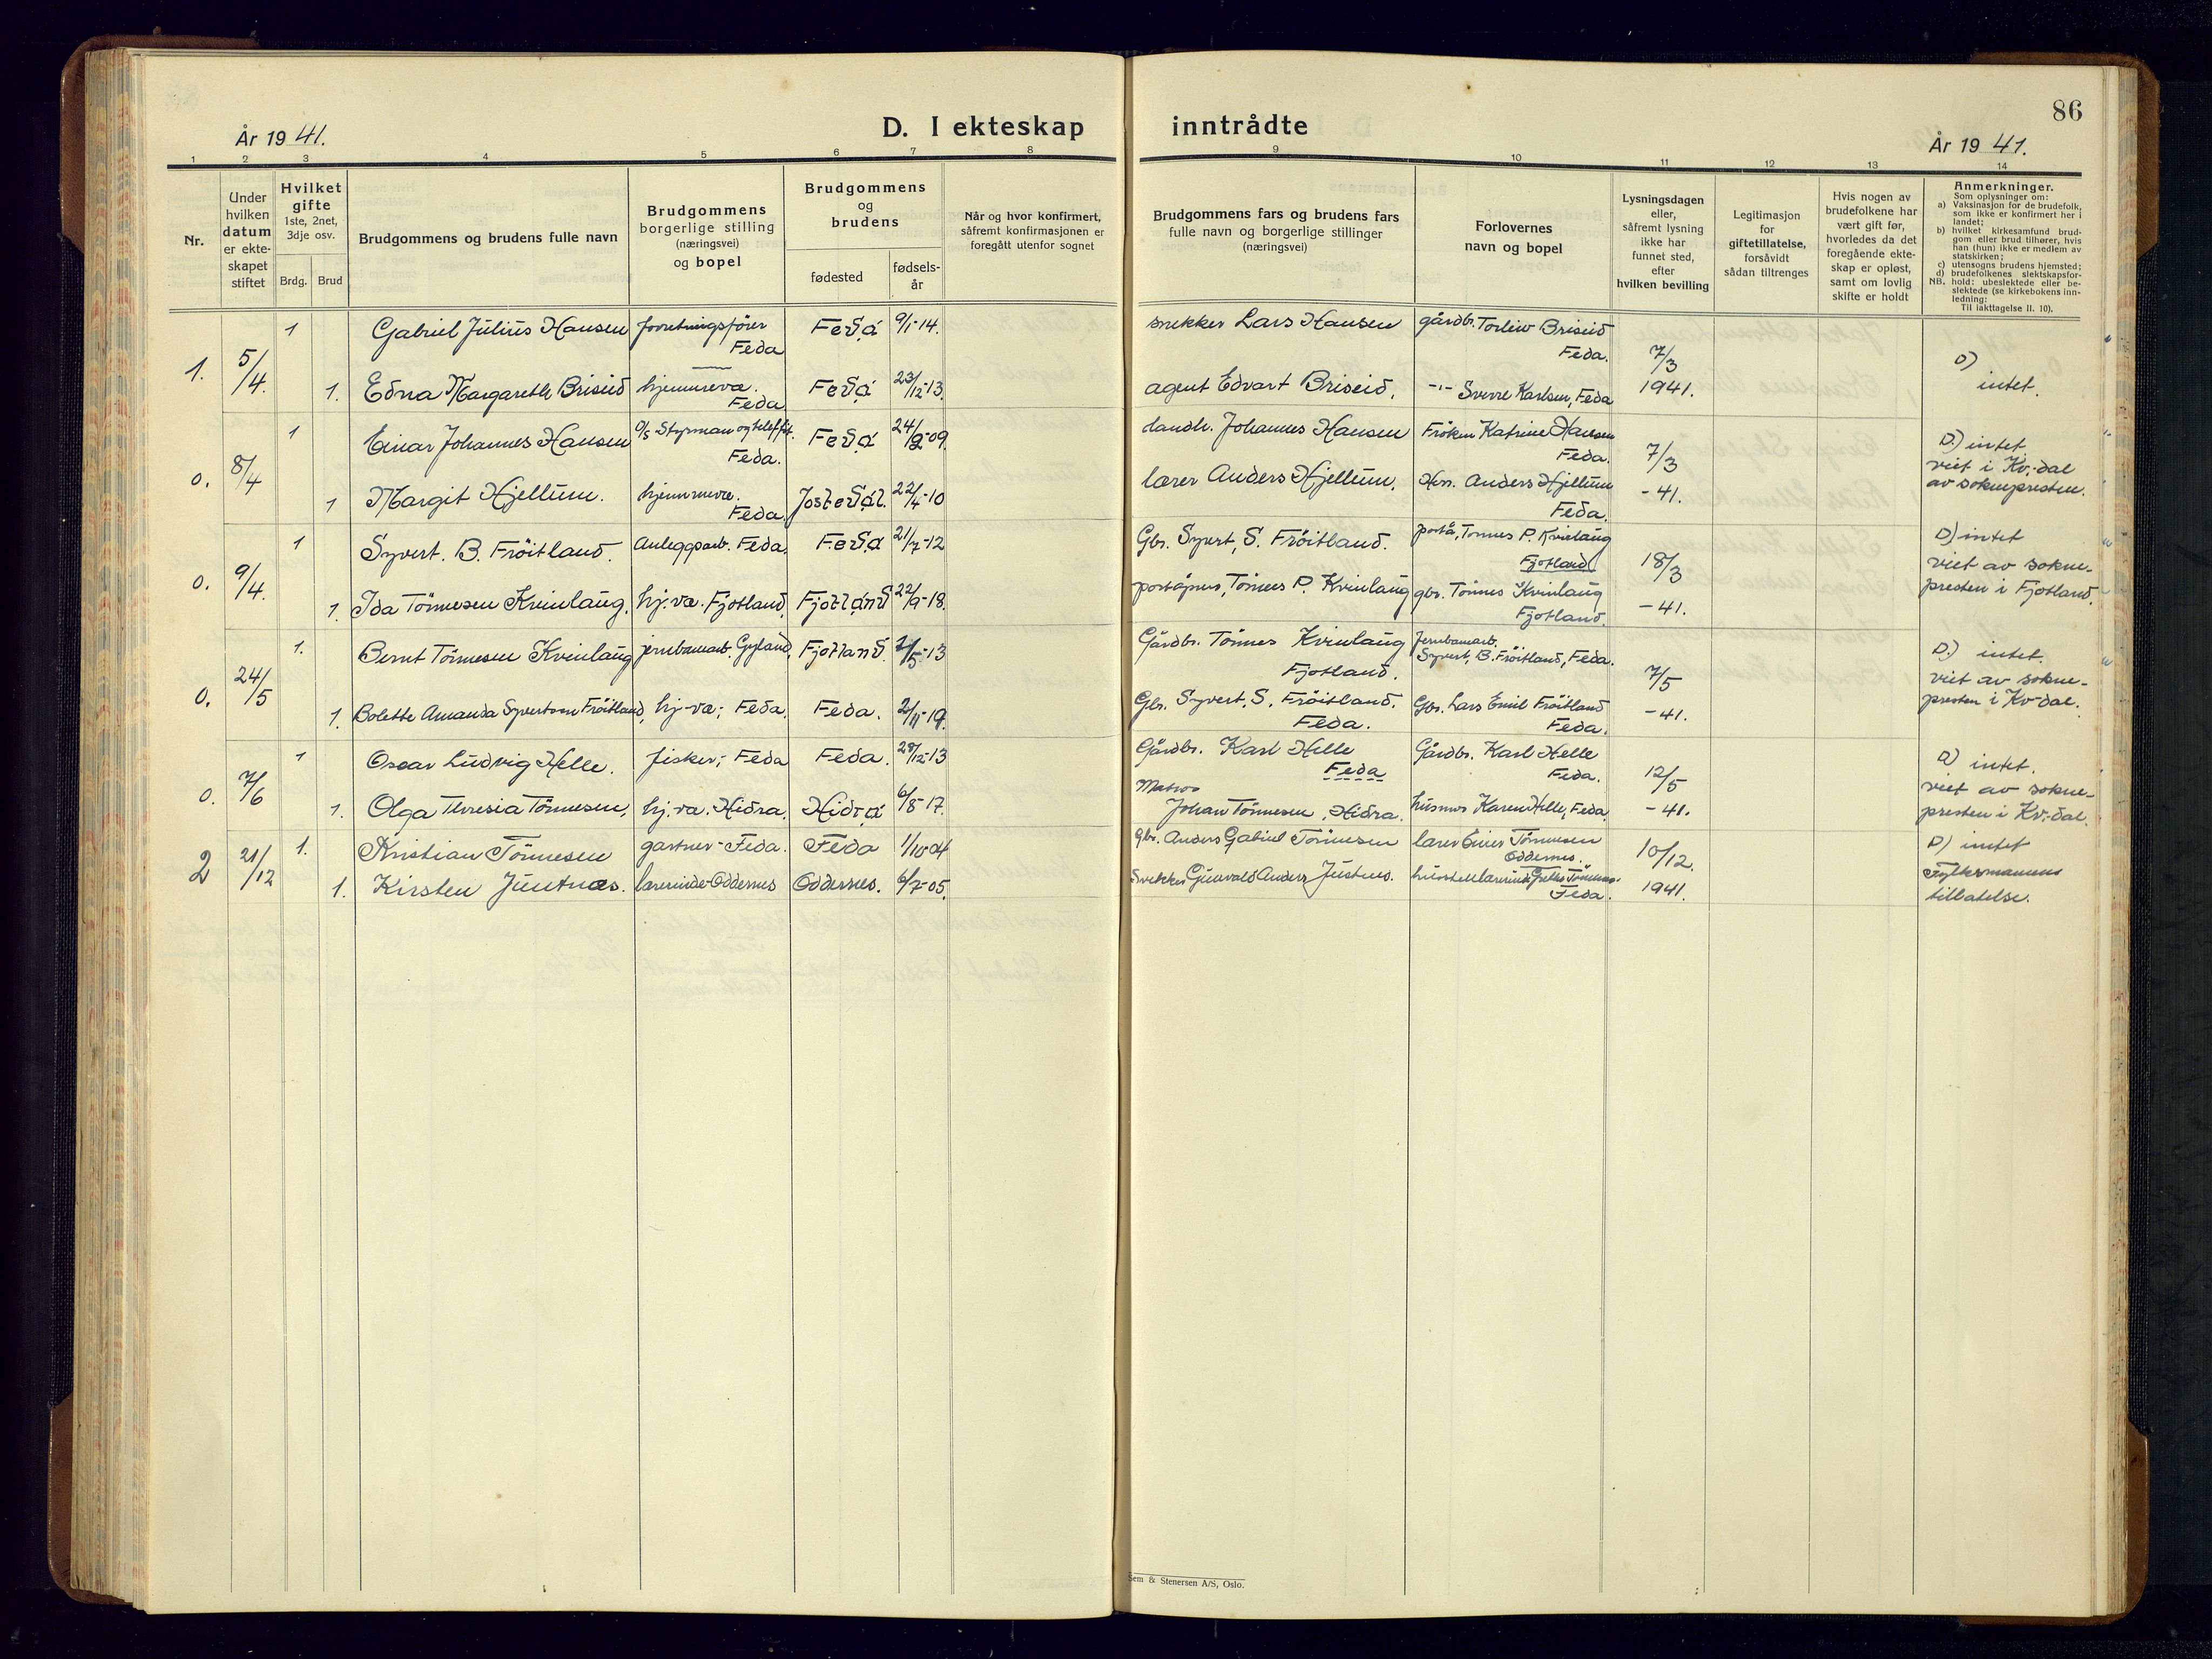 86
År 19 41.
D. I ekteskap inntrådte
År 19 41.
1 2 3 4 5 6 7 8 9 10 11 12 13 14
Nr.
Under
hvilken
datum
er ekte-
skapet
stiftet
Hvilket
gifte
1ste, 2net,
3dje osv.
Brdg. Brud
Brudgommens og brudens fulle navn
Brudgommens
borgerlige stilling
(næringsvei)
og bopel
Brudgommens
og
brudens
fødested
fødsels-
år
Når og hvor konfirmert,
såfremt konfirmasjonen er
foregått utenfor sognet
Brudgommens fars og brudens fars
fulle navn og borgerlige stillinger
(næringsvei)
Forlovernes
navn og bopel
Lysningsdagen
eller,
såfremt lysning
ikke har
funnet sted,
efter
hvilken bevilling
Legitimasjon
for
giftetillatelse,
forsåvidt
sådan tiltrenges
Hvis nogen av
brudefolkene har
vært gift før,
hvorledes da det
foregående ekte-
skap er opløst,
samt om lovlig
skifte er holdt
Anmerkninger.
Som oplysninger om:
a) Vaksinasjon for de brudefolk,
som ikke er konfirmert her i
landet;
b) hvilket kirkesamfund brud-
gom eller brud tilhører, hvis
han (hun) ikke er medlem av
statskirken;
c) utensogns brudens hjemsted;
d) brudefolkenes slektskapsfor-
NB. hold: ubeslektede eller be-
slektede (se kirkebokens inn-
ledning:
Til iakttagelse II. 10).
1. 5/4. 1 Gabriel Julius Hansen forretningsfører Feda 9/1-14. snekker Lars Hansen gårdbr. Torleiv Briseid
Feda Feda. 7/3 D)
1. Edna Margareth Briseid hjemmevæ. Feda 23/12-13. agent Edvart Briseid. -"- Sverre Karlsen, Feda 1941. intet.
Feda
0. 8/4 1 Einar Johannes Hansen Styrman og Feda 24/2-09. Johannes Hansen Frøken Katrine Hansen
Feda. Feda. 7/3 D.) intet
1 Margit Hjellum. hjemmevæ. Jostedal. 22/4-10 lærer Anders Hjellum. Anders Hjellum - 41. viet i Kv.-dal
Feda. Feda. av soknepresten.
0. 9/4. 1 Syvert. B. Fröitland. Anleggsarb. Feda. Feda 21/7-12 Gbr. Syvert, S. Fröitland. postå, Tönnes P. Kvinlaug D) intet
Fjotland 18/3 viet av sokne-
1. Ida Tönnesen Kvinlaug. hj.væ. Fjotland Fjotland 22/9-18. poståpner, Tönnes P. Kvinlaug gbr. Tönnes Kvinlaug - 41. presten i Fjotland.
Fjotland.
0. 24/5 1. Bernt Tönnesen Kvinlaug jernbanearb. Gyland, Fjotland. /5-13 Gårdbr. Tönnes Kvinlaug Jernbanearb. D.) intet.
Fjotland. Syvert, B. Fröitland, Feda. 7/5 viet av sokne-
1. Bolette Amanda Syvertsen Fröitland, hj-væ; Feda. Feda. 2/11-19. Gbr. Syvert, S. Fröitland. Gbr. Lars Emil Fröitland - 41. presten i Kv-dal.
Feda. Feda.
0. 7/6 1 Oscar Ludvig Helle. fisker; Feda Feda. 28/12-13 Gårdbr. Karl Helle Gårdbr. Karl Helle
Feda Feda. 12/5 intet.
Matros viet av sokne-
1. Olga Theresia Tönnesen, hj.væ. Hidra. Hidra 6/8-17. Johan Tönnesen, Hidra. husmor Karen Helle, Feda - 41. presten i Kv.-dal.
2 21/12 1. Kristian Tönnesen gartner - Feda. Feda 1/10-04 Gbr. Anders Gabriel Tönnesen lærer Einar Tönnesen 10/12. D) intet
Oddernes. Fylkesmannens
1. Kirsten Justnæs. lærerinde - Oddernes Oddernes. 6/7-05. Snekker Gunvald Anders Justnes. 1941. tillatelse.
Feda.
Sem & Stenersen A/S, Oslo.